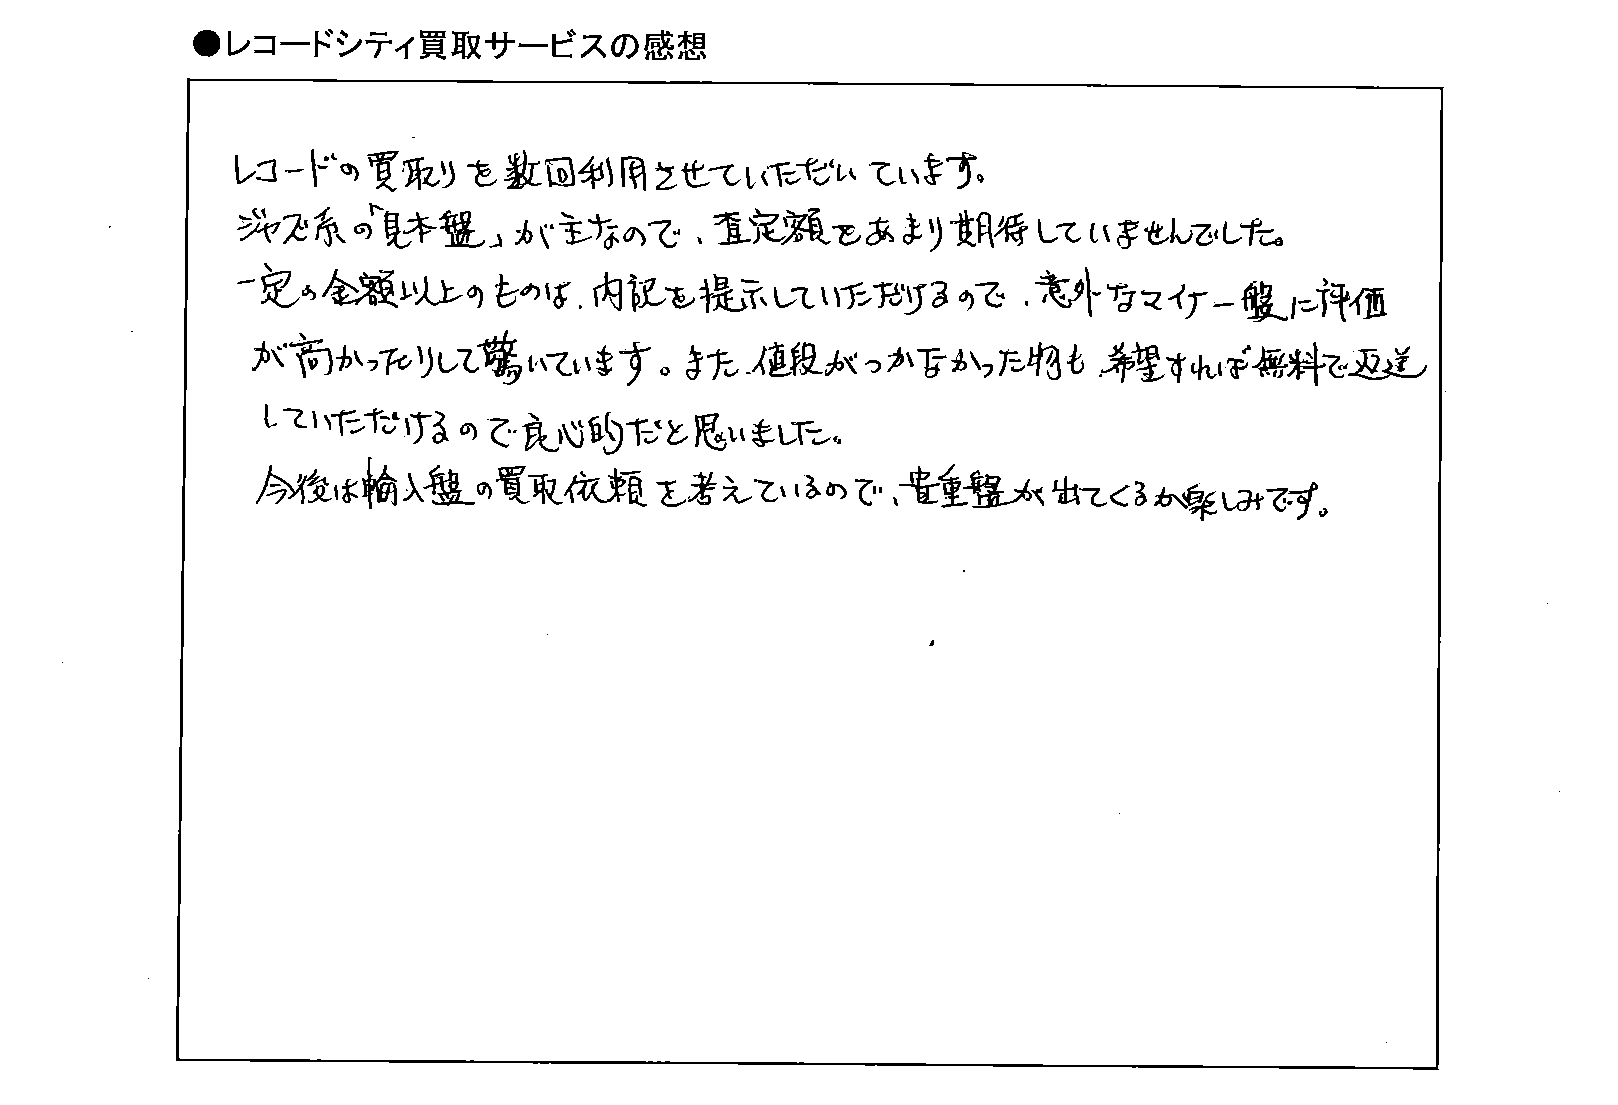 ●レコードシティ買取サービスの感想
レコードの買取りを数回利用させていただいています。
ジャズ系の「見本盤」が主なので、査定額をあまり期待していませんでした。
一定の金額以上のものは、内記を提示していただけるので、意外なマイナー盤に評価
が高かったりして驚いています。また、値段がつかなかった物も、希望すれば無料で返送
していただけるので良心的だと思いました。
今後は輸入盤の買取依頼を考えているので、貴重盤が出てくるか楽しみです。